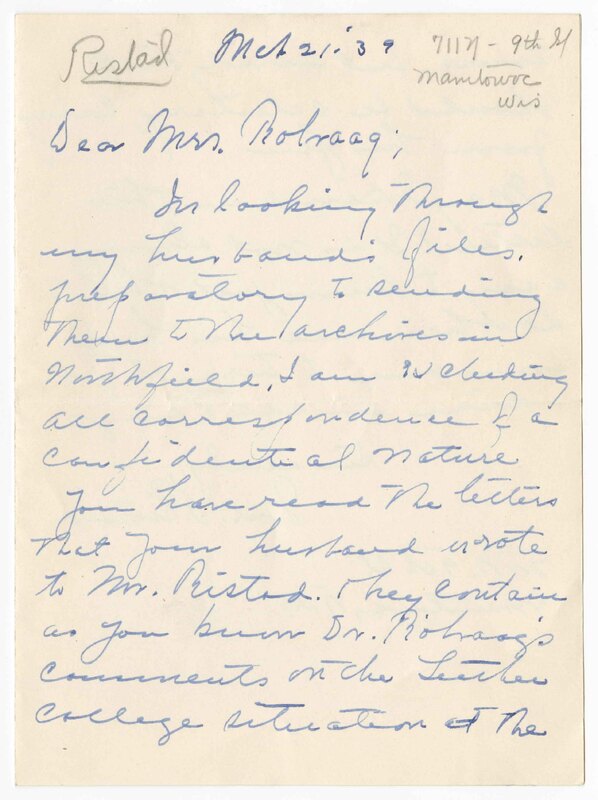 Ristad
Oct 21 '39
711 N - 9th St
Manitowoc
Wis
Dear Mrs. Rolvaag;
In looking through
my husband's files,
preparatory to sending
them to the archives in
Northfield, I am excluding
all correspondence of a
confidential nature
You have read the letters
that your husband wrote
to Mr. Ristad. They contain
as you know Dr. Rölvaag's
comments on the Luther
College situation at the